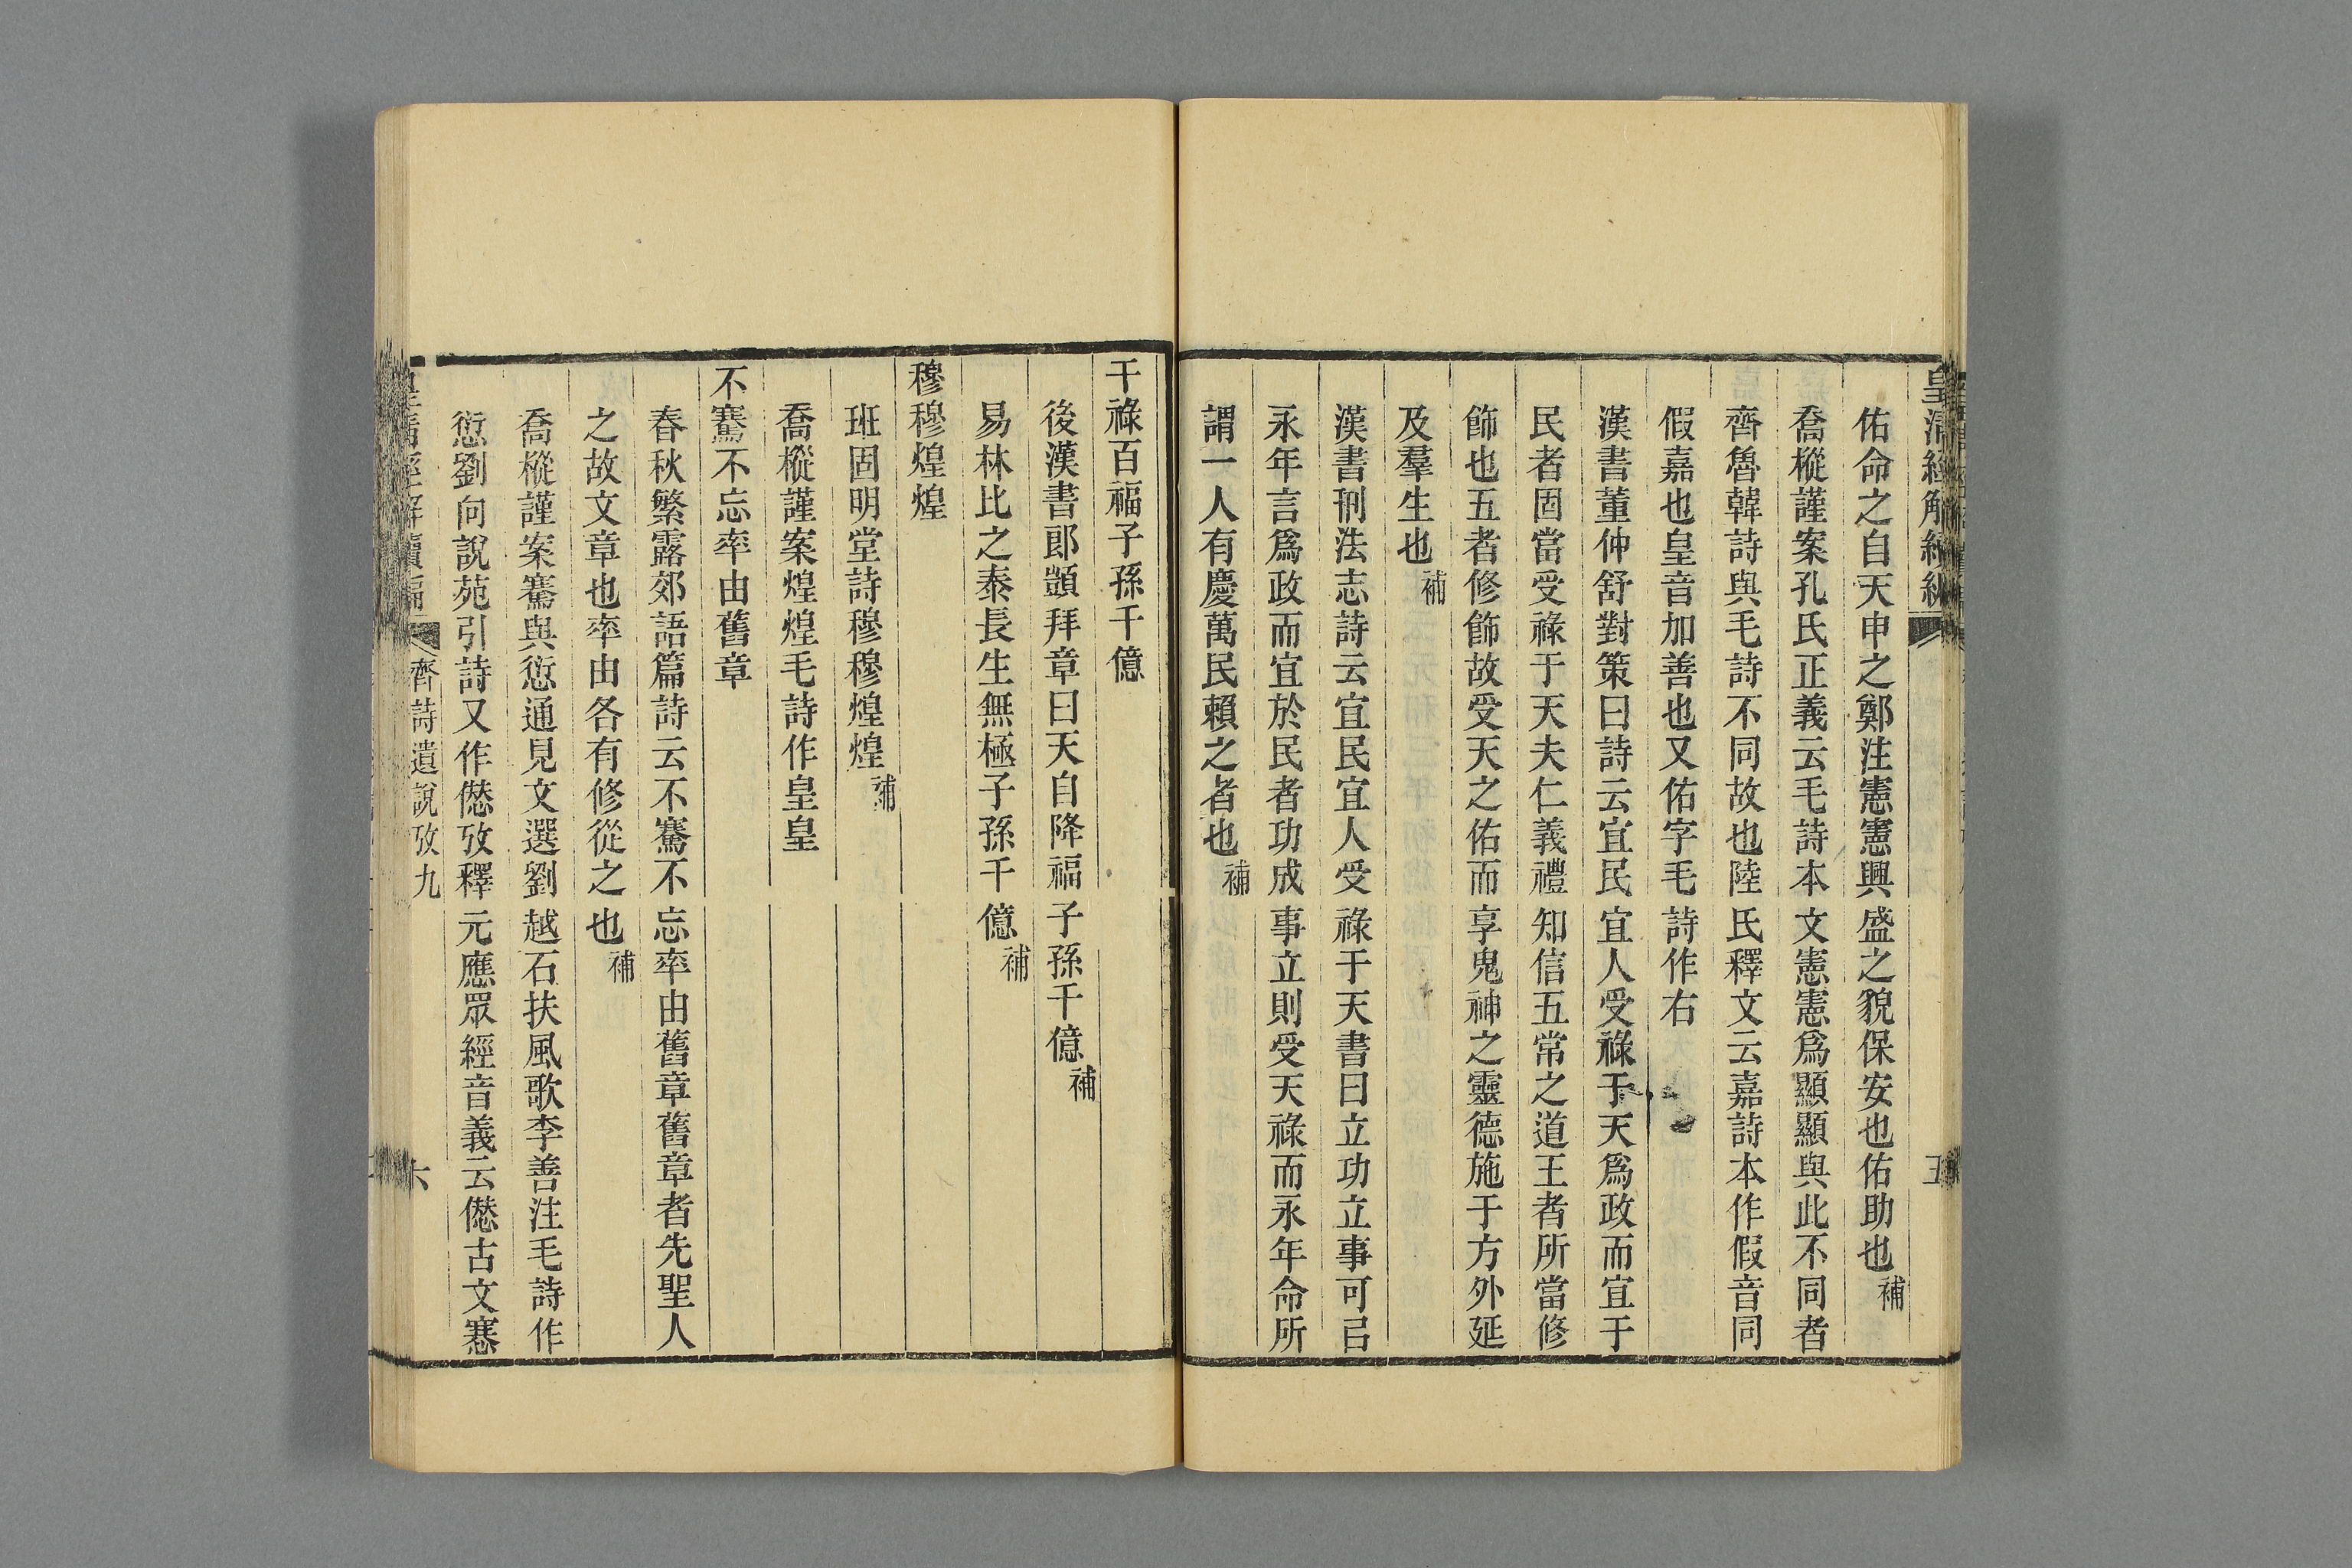 皇清經解續編
佑命之自天申之鄭注憲憲興盛之貌保安也佑助也補
喬樅謹案孔氏正義云毛詩本文憲憲爲顯顯與此不同者
齊魯韓詩與毛詩不同故也陸氏釋文云嘉詩本作假音同
假嘉也皇音加善也又佑字毛詩作右
漢書董仲舒對策曰詩云宜民宜人受祿于天爲政而宜于
民者固當受祿于天夫仁義禮知信五常之道王者所當修
飾也五者修飾故受天之佑而享鬼神之靈德施于方外延
及羣生也補
漢書刑法志詩云宜民宜人受祿于天書曰立功立事可㠯
永年言爲政而宜於民者功成事立則受天祿而永年命所
謂一人有慶萬民賴之者也補
五
干祿百福子孫千億
後漢書郎顗拜章曰天自降福子孫千億補
易林比之泰長生無極子孫千億補
穆穆煌煌
班固明堂詩穆穆煌煌補
喬樅謹案煌煌毛詩作皇皇
不騫不忘率由舊章
春秋繁露郊語篇詩云不騫不忘率由舊章舊章者先聖人
之故文章也率由各有修從之也補
喬樅謹案騫與愆通見文選劉越石扶風歌李善注毛詩作
愆劉向說苑引詩又作僁攷釋元應眾經音義云僁古文寋
皇清經解續編
齊詩遺說攷九
六